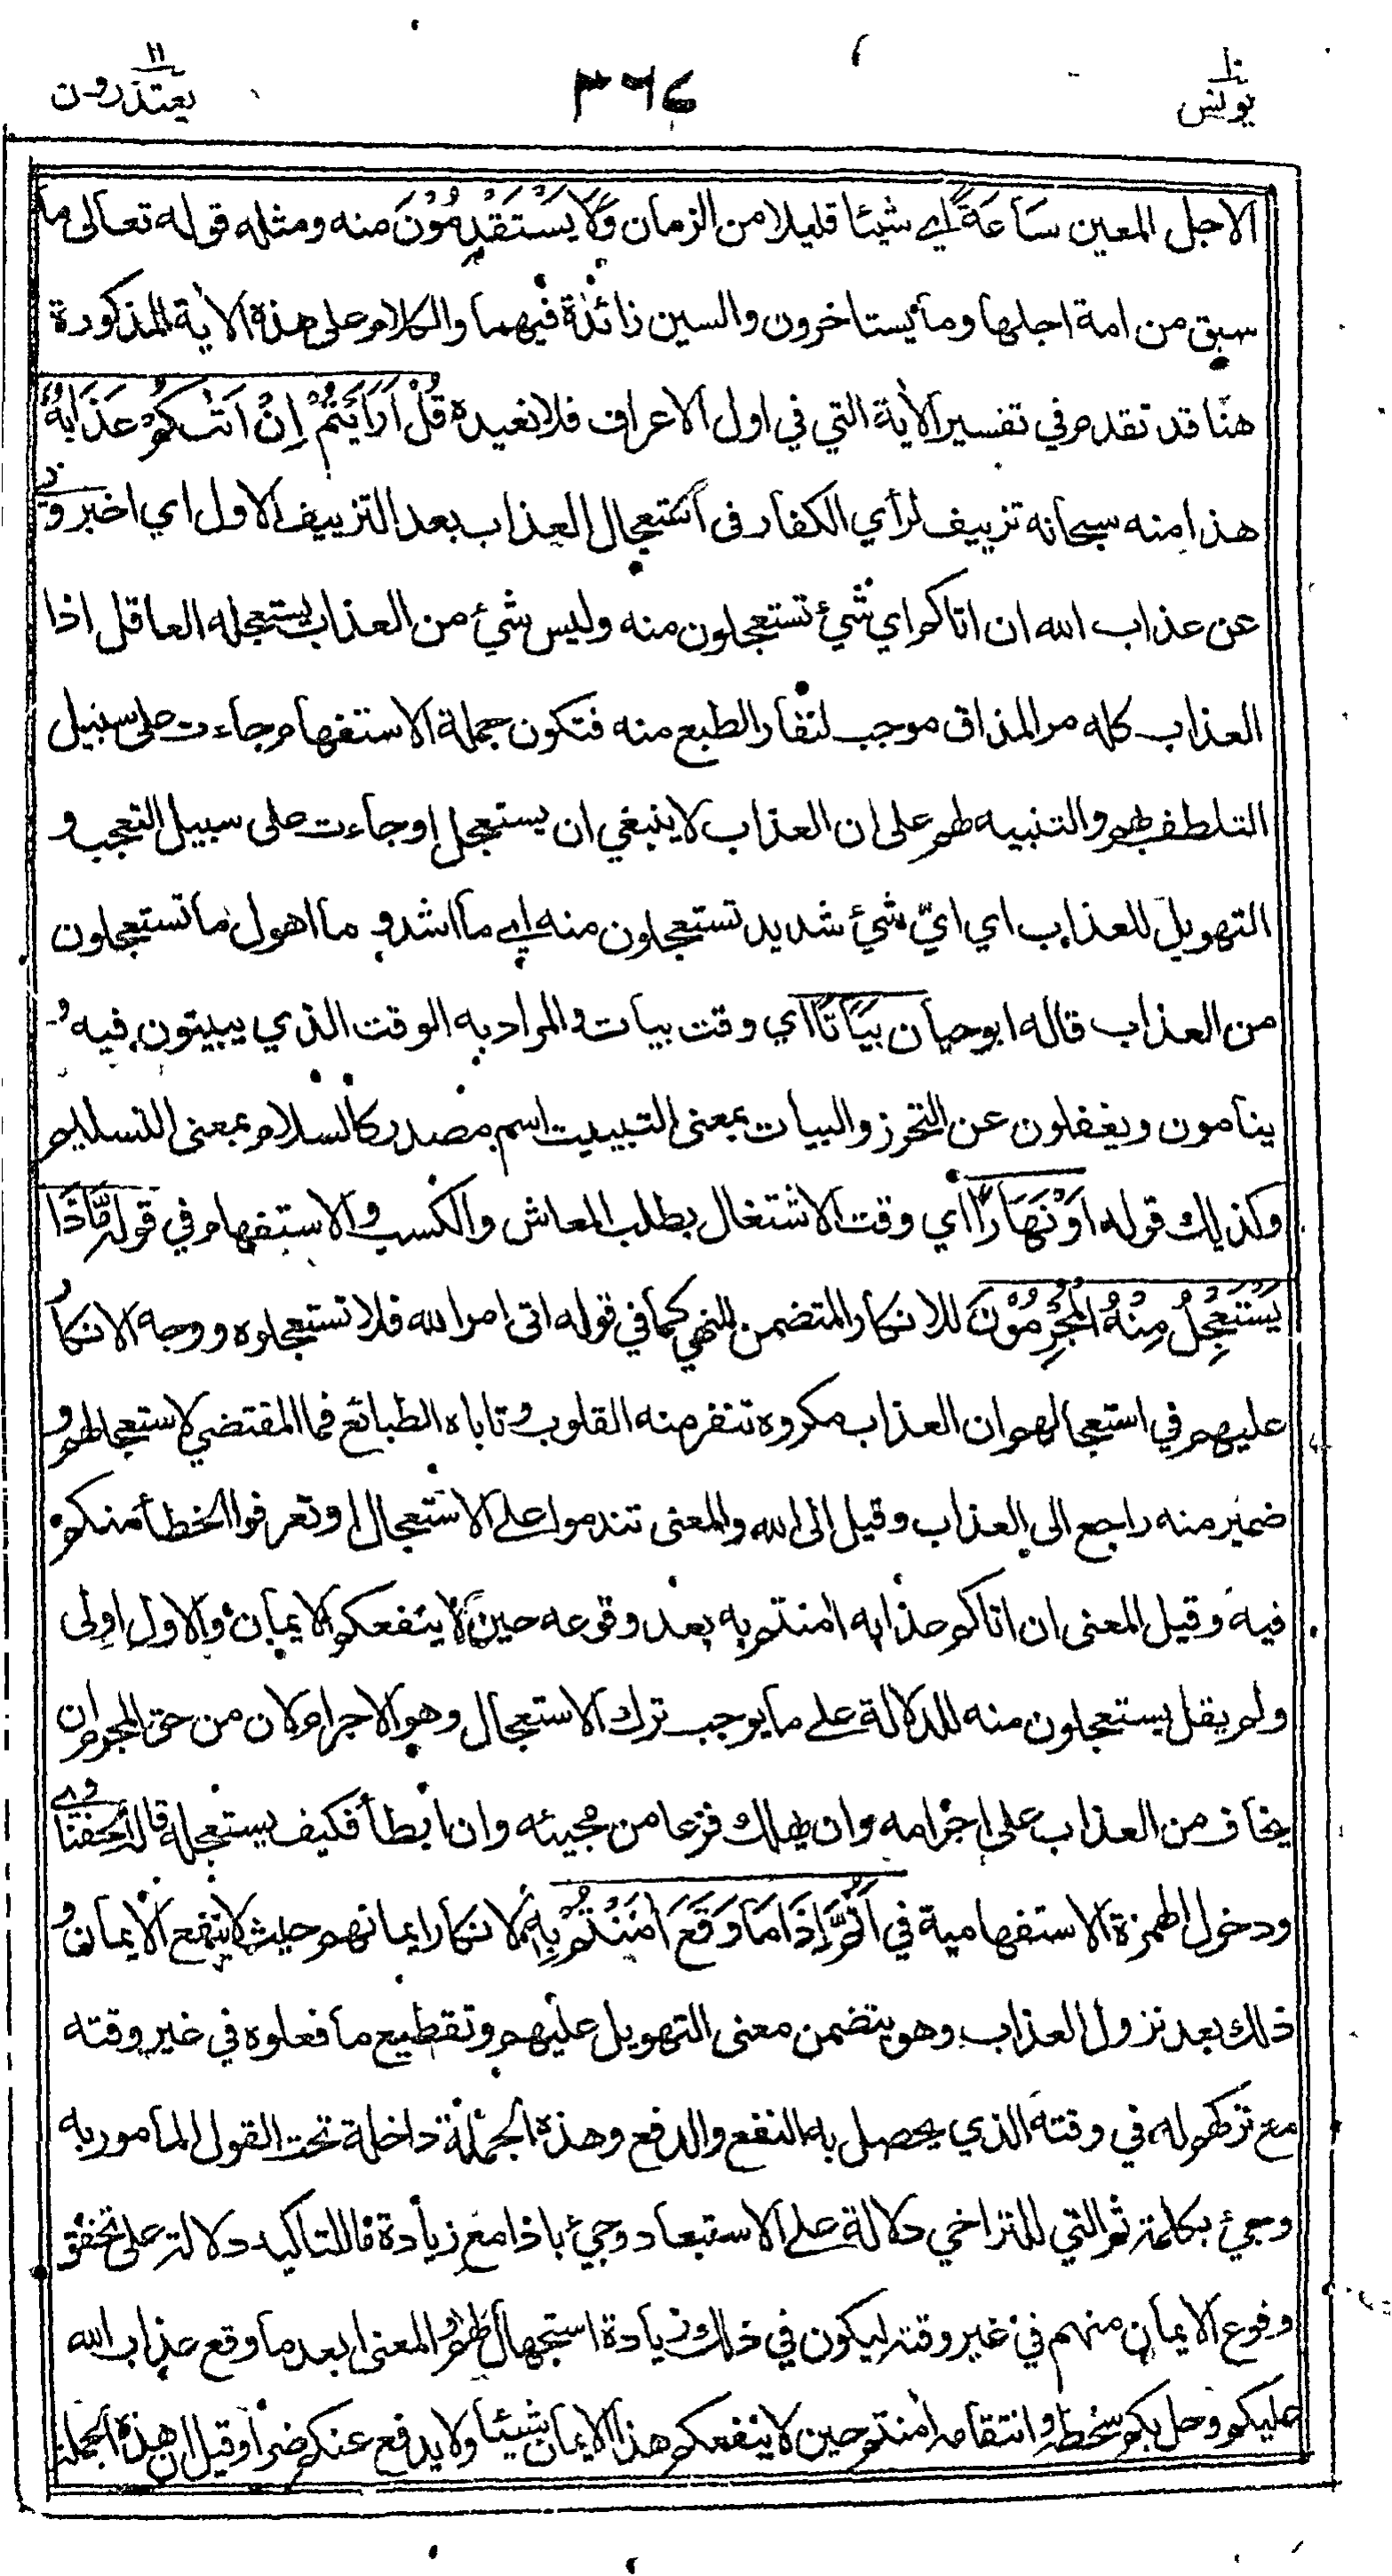 يونس ١٠
٣٦٤
يعتذرون ١١
الاجل المعين سَاعَةً اي شيئا قليلا من الزمان وَّلَا يَسْتَقْدِمُوْنَ منه ومثله قوله تعالى ما
سبق من امة اجلها وما يستاخرون والسين زائدة فيهما والكلام على هذة الاية المذكورة
هنا قد تقدم في تفسير الاية التي في اول الاعراف فلا نعيدة قُلْ اَرَاَيْتُمْ اِنْ اَتٰىكُمْ عَذَابُهٗ
هذا منه سبحانه تزييف لرأي الكفار في استعجال العذاب بعد التزييف الاول اي اخبروني
عن عذاب الله ان اتاكم اي شيئ تستعجلون منه وليس شيئ من العذاب يستعجله العاقل اذا
العذاب كله مر المذاق موجب لنفار الطبع منه فتكون جملة الاستفهام جاءت على سبيل
التلطف بهم والتنبيه لهم على ان العذاب لا ينبغي ان يستعجل او جاءت على سبيل التعجب و
التهويل للعذاب اي ايّ شيئ شديد تستعجلون منه اي ما اشد و ما اهول ما تستعجلون
من العذاب قاله ابو حيان بَيَاتًا اي وقت بيات والمراد به الوقت الذي يبيتون فيه و
ينامون ويغفلون عن التحرز والبيات بمعنى التبييت اسم مصدر كالسلام بمعنى التسليم
وكذلك قوله اَوْ نَهَارًا اي وقت الاشتغال بطلب المعاش والكسب والاستفهام في قوله مَّاذَا
يَسْتَعْجِلُ مِنْهُ الْمُجْرِمُوْنَ للانكار المتضمن للنهي كما في قوله اتى امر الله فلا تستعجلوه ووجه الانكار
عليهم في استعجالهم ان العذاب مكروه تنفر منه القلوب وتاباه الطبائع فما المقتضي لاستعجالهم و
ضمير منه راجع الى العذاب وقيل الى الله والمعنى تندموا على الاستعجال او تعرفوا الخطأ منكم
فيه وقيل المعنى ان اتاكم عذابه امنتم به بعد وقوعه حين لا ينفعكم الايمان والاول اولى
ولم يقل يستعجلون منه للدلالة على ما يوجب ترك الاستعجال وهو الاجرام لان من حق المجرم ان
يخاف من العذاب على اجرامه وان يهلك فزعا من مجيئه وان ابطأ فكيف يستعجله قاله الحفناوي
ودخول الهمزة الاستفهامية في اَثُمَّ اِذَا مَا وَقَعَ اٰمَنْتُمْ بِهٖ لانكار ايمانهم حيث لا ينفع الايمان و
ذلك بعد نزول العذاب وهو يتضمن معنى التهويل عليهم وتفظيع ما فعلوه في غير وقته
مع تركهم له في وقته الذي يحصل به النفع والدفع وهذه الجملة داخلة تحت القول المأمور به
وجيئ بكلمة ثم التي للتراخي دلالة على الاستبعاد وجيئ باذا مع زيادة ما للتاكيد دلالة على تحقق
وقوع الايمان منهم في غير وقته ليكون في ذلك زيادة استجهال لهم والمعنى ابعد ما وقع عذاب الله
عليكم وحل بكم سخطه وانتقامه امنتم حين لا ينفعكم هذا الايمان شيئا ولا يدفع عنكم ضرا وقيل ان هذه الجملة